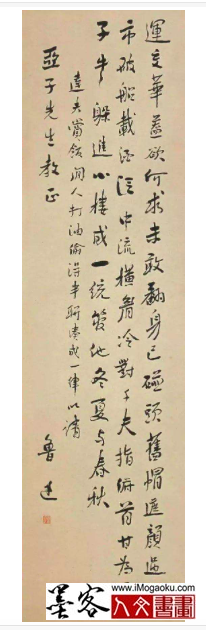 運交華蓋欲何求未敢翻身已碰頭舊帽遮顏過
市破船載酒泛中流橫眉冷對千夫指俯首甘為孺
子牛躲進小樓成一統管他冬夏与春秋
達夫賞飯閒人打油偷得半聯湊成一律以請
亞子先生教正
魯迅
www.iMogaoku.com
墨客
人文書畫